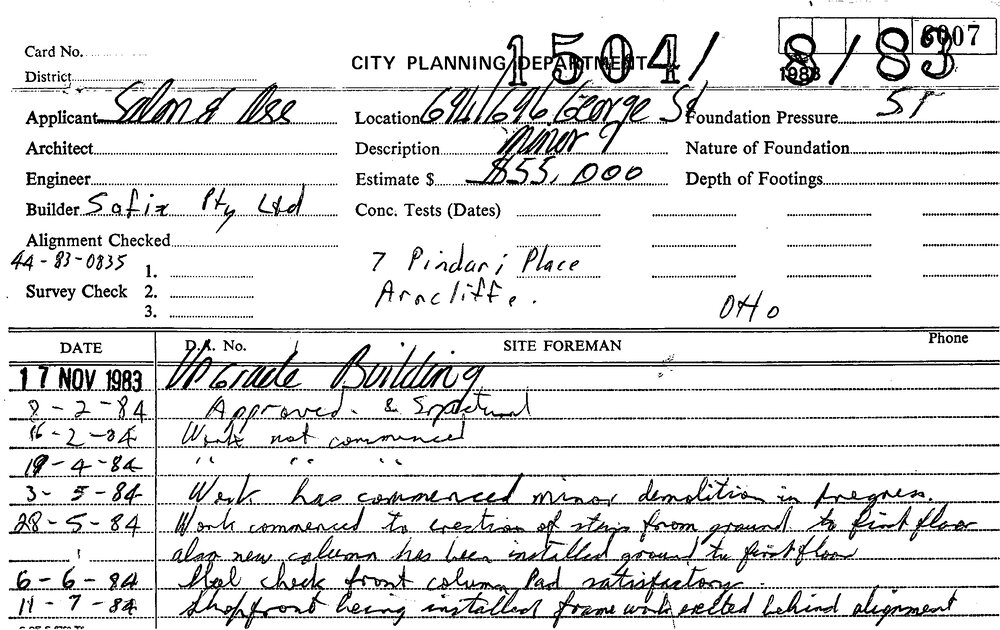 Card No. 1504/8/83 0007
District CITY PLANNING DEPARTMENT 1983
Applicant Location 694/696 George St Foundation Pressure ST
Architect Description Minor 9 Nature of Foundation
Engineer Estimate $ $55,000 Depth of Footings
Builder Sofix Pty Ltd Conc. Tests (Dates)
Alignment Checked
44-83-0835 1. 7 Pindari Place
Survey Check 2. Arncliffe.
3. OHo
DATE D.A. No. SITE FOREMAN Phone
17 NOV 1983 Upgrade Building
8-2-84 Approved. & Structural
16-2-84 Work not commenced
19-4-84 " " "
3-5-84 Work has commenced minor demolition in progress.
28-5-84 Work commenced to erection of stairs from ground to first floor
also new column has been installed ground to first floor
6-6-84 Steel check front column Pad satisfactory.
11-7-84 Shopfront being installed framework erected behind alignment